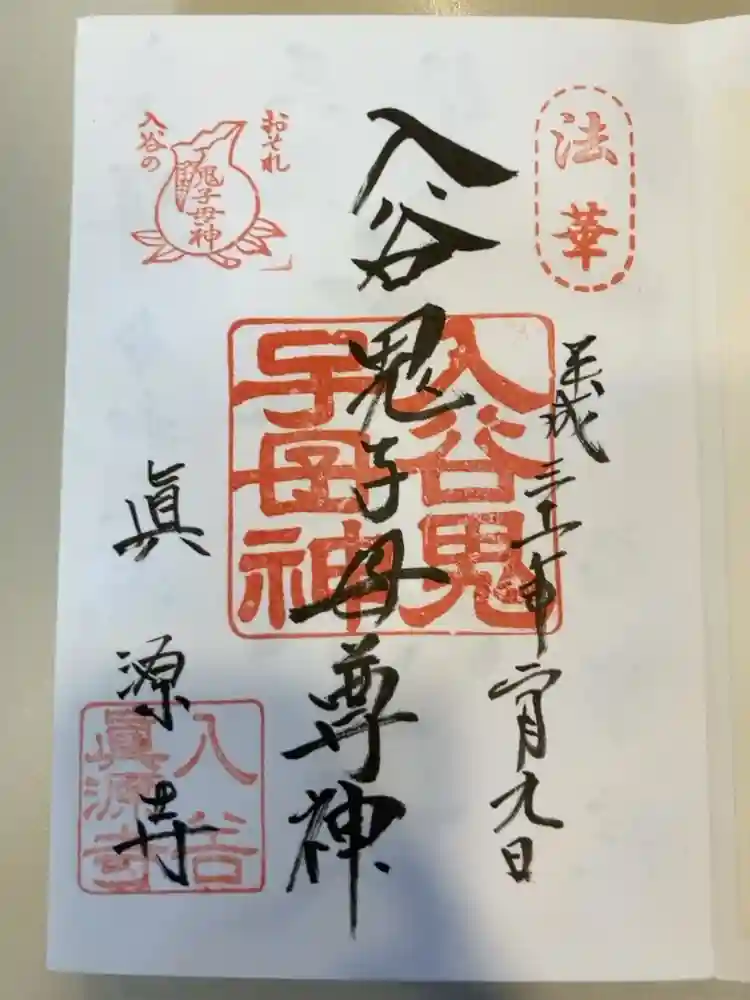 法華
平成三十一年二月九日
入谷鬼子母尊神
入谷鬼
子母神
おそれ
鬼子母神
入谷の
眞源寺
入谷
眞源寺